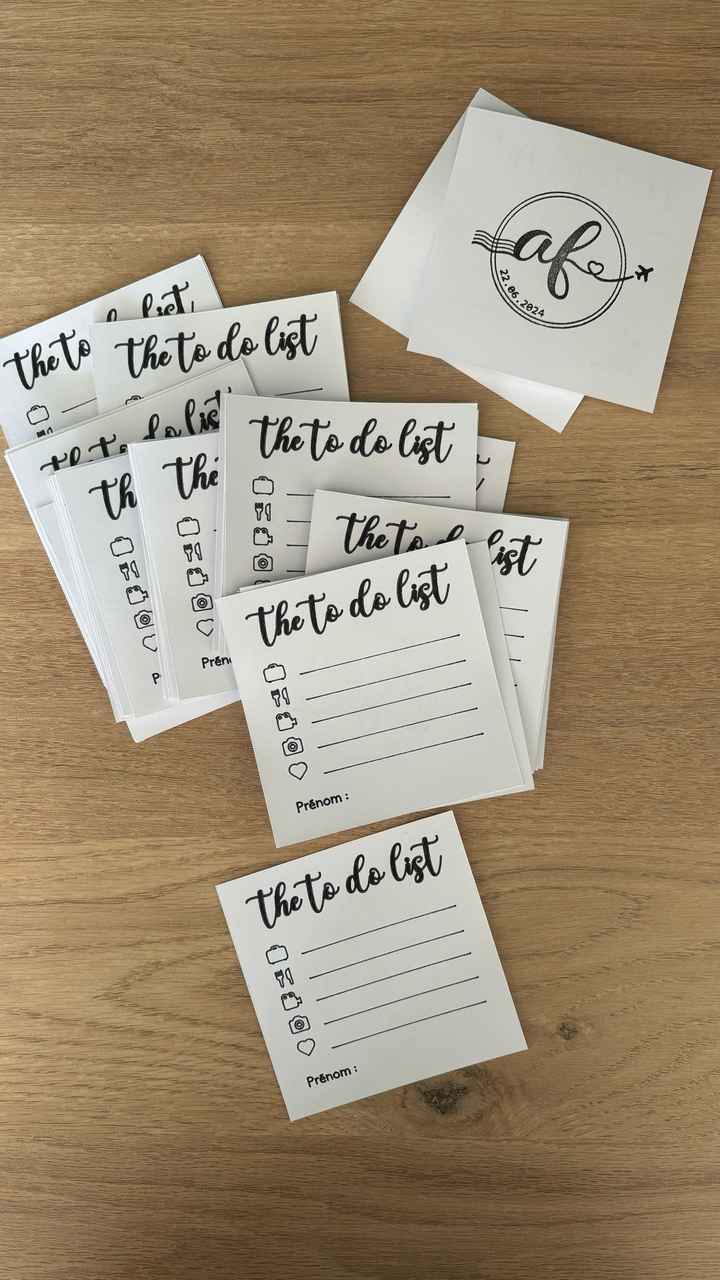 af
22.06.2024
the to do list
the to do list
the to do list
the to do list
the
the
the to do list
the to do list
Prénom :
Prénom :
the to do list
Prénom :